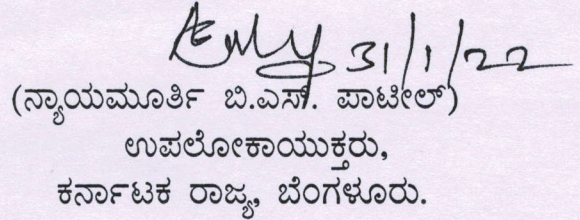 31/1/22
(ನ್ಯಾಯಮೂರ್ತಿ ಬಿ.ಎಸ್. ಪಾಟೀಲ್)
ಉಪಲೋಕಾಯುಕ್ತರು,
ಕರ್ನಾಟಕ ರಾಜ್ಯ, ಬೆಂಗಳೂರು.